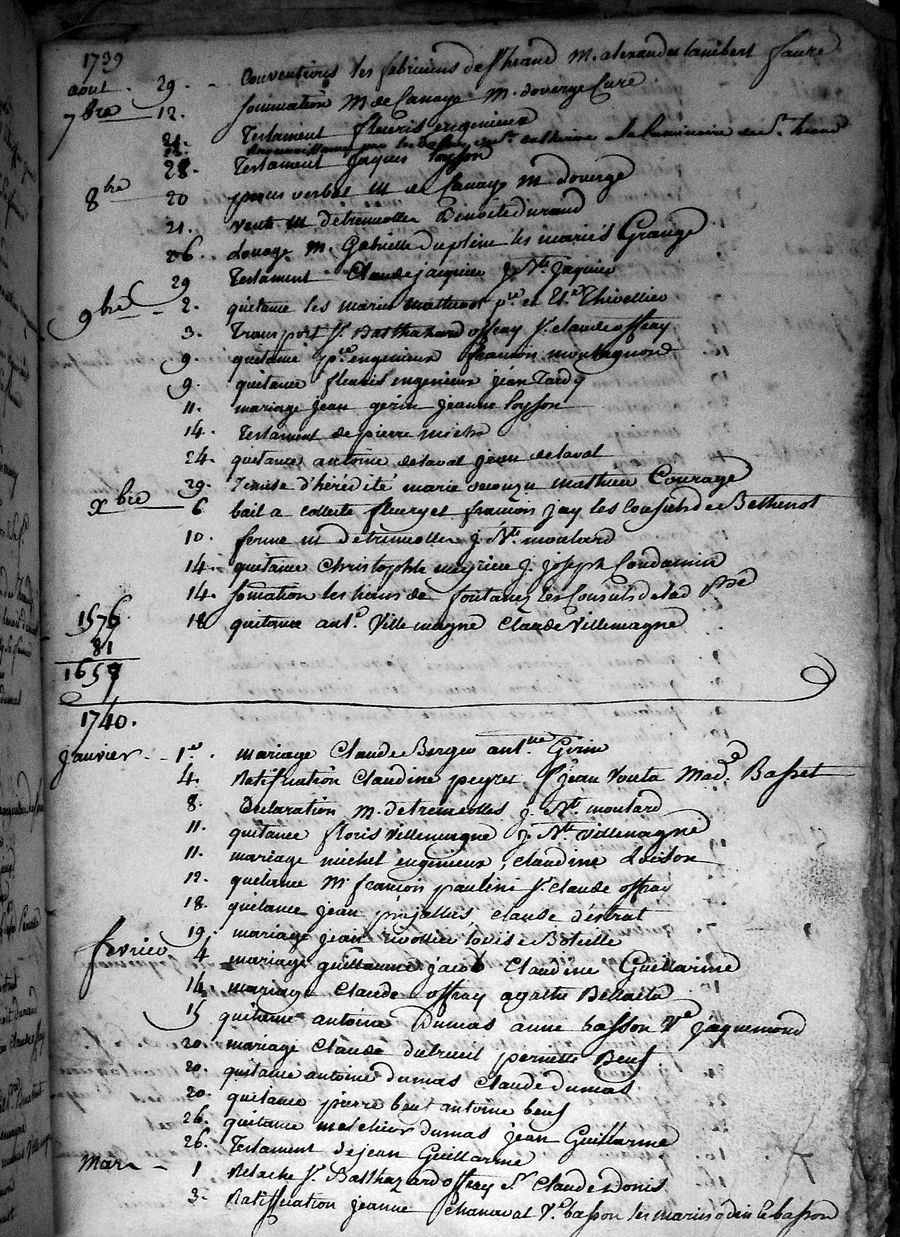 1739
aout. 29. Conventions les fabriciens de St heand M. alexandre Lambert faure
7bre 12. sommation M de Canaye M. doverge Cure
21. Testament fleuris engenieux
12. par les ste catherine a la luminaire de St heand
28. Testament Jaques Loysson
8bre 20 procès verbal M de Canaye M doverge
21. vente M detremeolles Benoite durand
26. Louage M. Gabrielle duplein les mariés Grange
29 Testament Claude jaquier J. Bte Jaquier
9bre 2. quitance les mariés mathevot pre et Et. Thivellier
3. Transport Sr. Balthazard offray Sr. claude offray
9. quitance pre engenieux francois montagnon
9. quitance fleuris engenieux jean Tardy
11. mariage jean gerin jeanne Loysson
14. Testament de pierre michon
24. quitance antoine delaval jean delaval
29. Remise d'hérédité marie mathieu Courage
Xbre 6 bail a collecte fleury et francois jay les Consuls de Bethenot
10. ferme M detremeolles J. Bte moulard
14. quitance Christophle meyrieu J. joseph Condamin
14. sommation les hoirs de fontanez les Consuls de lad. psse
1576. 18 quitance ant. Villemagne Claude Villemagne
81
1657
1740.
Janvier 1er. mariage Claude Berger antne Gerin
4. Ratification Claudine peyret Sr jean vouta Mad. Basset
8. Declaration M. detremeolles J. Bte. moulard
11. quitance floris Villemagne J. Bte Villemagne
11. mariage michel engenieux, claudine Loison
12. quitance Mr francois paulin Sr. claude offray
18. quitance jean préjallies, claude d'estrat
19. mariage jean rivollier louise Bateille
fevrier 4 mariage guillaume jacob Claudine Guillarme
14 mariage Claude offray agathe
15 quitance antoine Dumas anne basson Ve jaquemond
20. mariage Claude dutreuil pernette Beuf
20. quitance antoine dumas Claude dumas
20. quitance pierre beuf antoine beuf
26. quitance melchior dumas jean Guillarme
26. Testament de jean Guillarme
Mar 1 Relache Sr. Balthazard offray Sr Claude Donis
3. Ratiffication jeanne Chanavat Ve. basson les mariés odin le basson